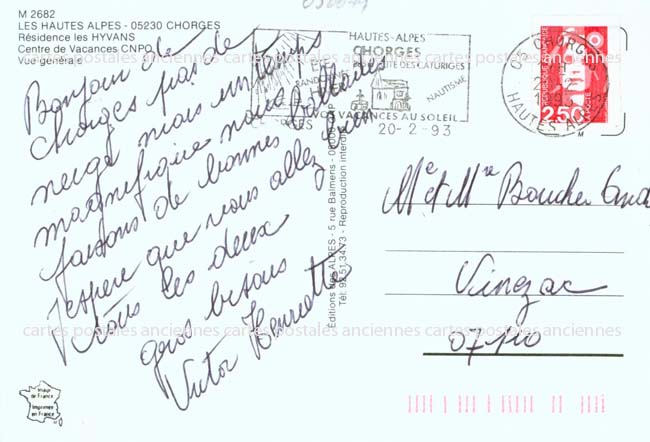 M 2682
LES HAUTES ALPES - 05230 CHORGES
Résidence les HYVANS
Centre de Vacances CNPO
Vue générale
Bonjour de
chorges pas de
neige mais un temps
magnifique nous
faisons de bonnes ballades
J'espere que vous allez bien
tous les deux
gros bisous
Victor Henriette
HAUTES-ALPES
CHORGES
DES CATURIGES
NAUTISME
VACANCES AU SOLEIL
20-2-93
05 CHORGES
HAUTES ALPES
2,50
M
Editions des ALPES - 5 rue Balmens - 05000 GAP
Tél. 92.51.34.73 - Reproduction interdite
Me et Mr Boucher
Vinezac
07110
Image de France
Imprimée en France
cartes postales anciennes cartes postales anciennes cartes postales anciennes
cartes postales anciennes cartes postales anciennes cartes postales anciennes